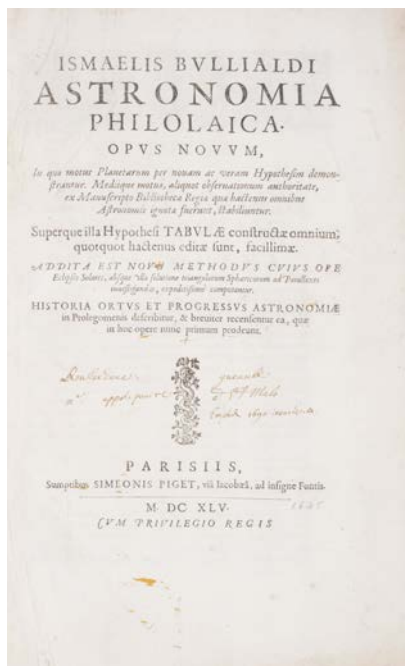 ISMAELIS BVLLIALDI
ASTRONOMIA
PHILOLAICA.
OPVS NOVVM,
In quo motus Planetarum per nouam ac veram Hypothesim demon-
strantur. Mediique motus, aliquot obseruationum authoritate,
ex Manuscripto Bibliothecæ Regiæ quæ hactenus omnibus
Astronomis ignotæ fuerunt, stabiliuntur.
Superque illa Hypothesi TABVLÆ constructæ omnium,
quotquot hactenus editæ sunt, facillimæ.
ADDITA EST NOVA METHODVS CVIVS OPE
Eclipses Solares, absque vlla solutione triangulorum Sphæricorum ad Parallaxes
inuestigandas, expeditissimè computantur.
HISTORIA ORTVS ET PROGRESSVS ASTRONOMIÆ
in Prolegomenis describitur, & breuiter recensentur ea, quæ
in hoc opere nunc primum prodeunt.
PARISIIS,
Sumptibus SIMEONIS PIGET, viâ Iacobæâ, ad insigne Fontis.
M. DC XLV. 1645
CVM PRIVILEGIO REGIS